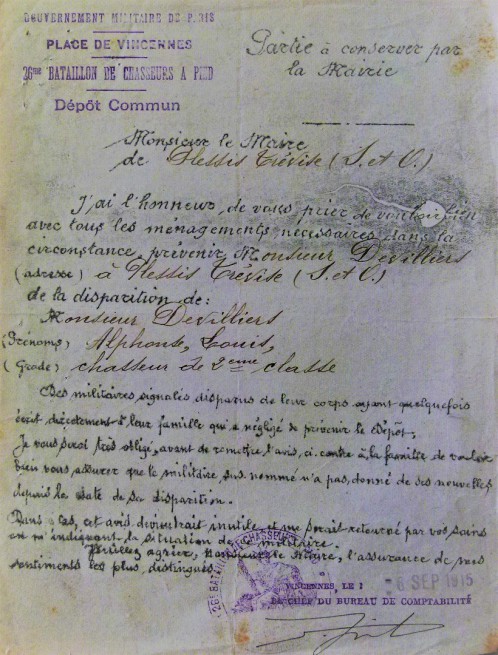 GOUVERNEMENT MILITAIRE DE PARIS
PLACE DE VINCENNES
26me BATAILLON DE CHASSEURS A PIED
Dépôt Commun
Partie à conserver par
la Mairie
Monsieur le Maire
de Plessis Trévise (S. et O.)
J'ai l'honneur, de vous prier de vouloir bien
avec tous les ménagements nécessaires dans la
circonstance, prévenir Monsieur Devilliers
(adresse) à Plessis Trévise (S. et O.)
de la disparition de:
Monsieur Devilliers
(Prénoms) Alphonse, Louis,
(Grade) chasseur de 2eme classe
Des militaires, signalés disparus de leur corps ayant quelquefois
écrit directement à leur famille qui a négligé de prévenir le Dépôt,
Je vous serai très obligé, avant de remettre l'avis, ci-contre à la famille de vouloir
bien vous assurer que le militaire sus nommé n'a pas, donné de ses nouvelles
depuis la date de sa disparition.
Dans ce cas, cet avis deviendrait inutile et me serait retourné par vos soins
en m'indiquant la situation de ce militaire.
Veuillez agréer, Monsieur le Maire, l'assurance de mes
sentiments les plus distingués.
26e BATAILLON DE CHASSEURS
VINCENNES, LE
6 SEP 1915
LE CHEF DU BUREAU DE COMPTABILITÉ